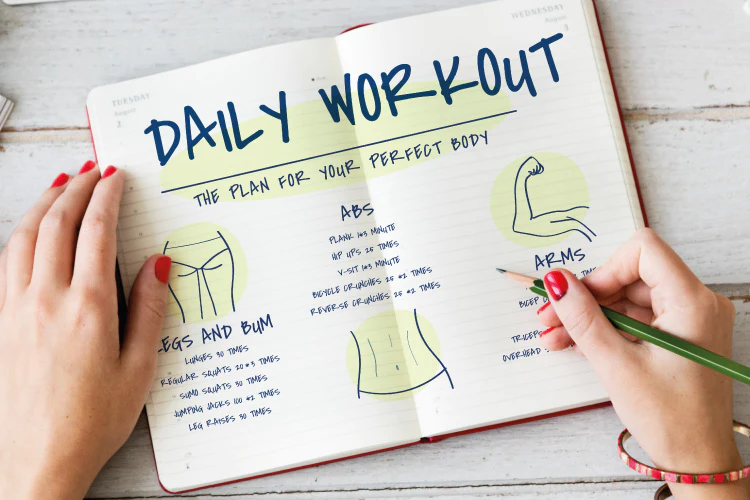 TUESDAY
August
WEDNESDAY
August
DAILY WORKOUT
THE PLAN FOR YOUR PERFECT BODY
LEGS AND BUM
LUNGES 30 TIMES
REGULAR SQUATS 20*3 TIMES
SUMO SQUATS 30 TIMES
JUMPING JACKS 100 *2 TIMES
LEG RAISES 30 TIMES
ABS
PLANK 1*3 MINUTE
HIP UPS 25 TIMES
V-SIT 1*3 MINUTE
BICYCLE CRUNCHES 25 *2 TIMES
REVERSE CRUNCHES 25 *2 TIMES
ARMS
BICEP
TRICEPS
OVERHEAD